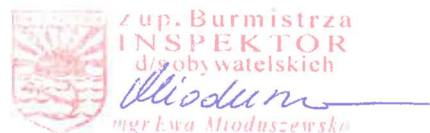 z up. Burmistrza
INSPEKTOR
d/s obywatelskich
mgr Ewa Mioduszewska